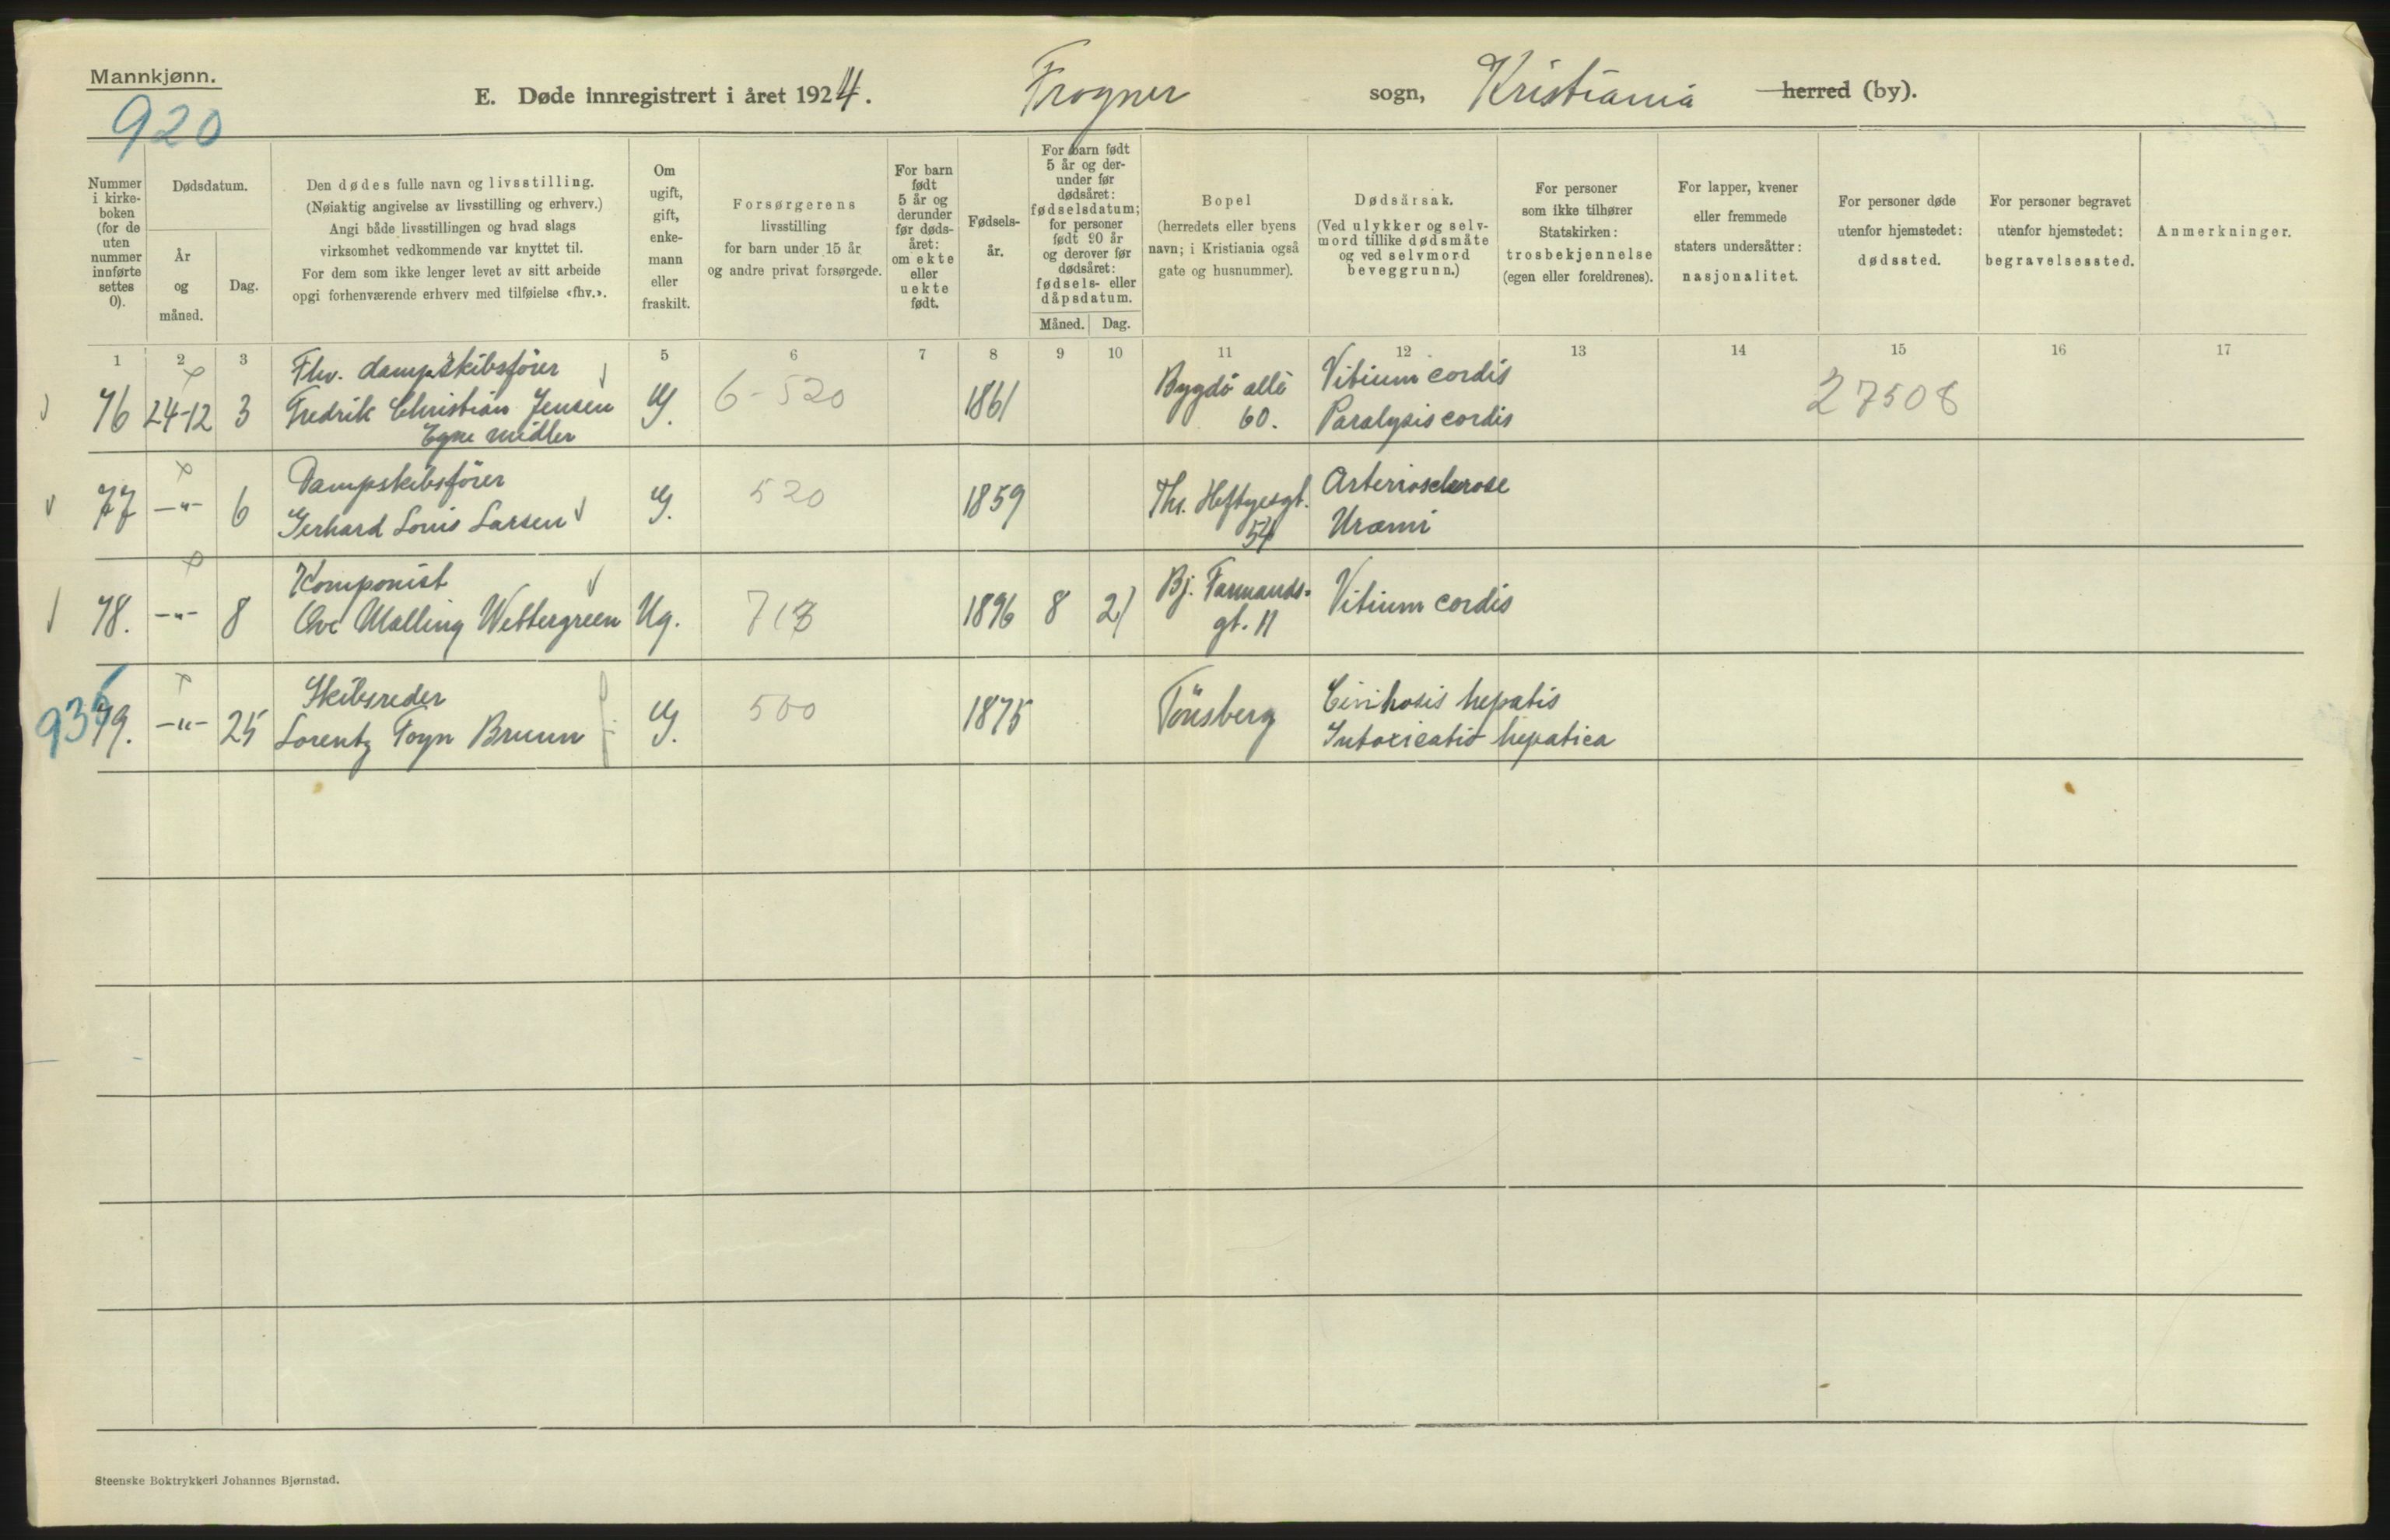 Mannkjønn.
920
E. Døde innregistrert i året 1924. Frogner sogn, Kristiania herred (by).
Nummer
i kirke-
boken
(for de
uten
nummer
innførte
settes
0).
Dødsdatum.
År
og
måned.
Dag.
Den dødes fulle navn og livsstilling.
(Nøiaktig angivelse av livsstilling og erhverv.)
Angi både livsstillingen og hvad slags
virksomhet vedkommende var knyttet til.
For dem som ikke lenger levet av sitt arbeide
opgi forhenværende erhverv med tilføielse «fhv.».
Om
ugift,
gift,
enke-
mann
eller
fraskilt.
Forsørgerens
livsstilling
for barn under 15 år
og andre privat forsørgede.
For barn
født
5 år og
derunder
før døds-
året:
om ekte
eller
uekte
født.
Fødsels-
år.
For barn født
5 år og der-
under før
dødsåret:
fødselsdatum;
for personer
født 90 år
og derover før
dødsåret:
fødsels- eller
dåpsdatum.
Måned. Dag.
Bopel
(herredets eller byens
navn; i Kristiania også
gate og husnummer).
Dødsårsak.
(Ved ulykker og selv-
mord tillike dødsmåte
og ved selvmord
beveggrunn.)
For personer
som ikke tilhører
Statskirken:
trosbekjennelse
(egen eller foreldrenes).
For lapper, kvener
eller fremmede
staters undersåtter:
nasjonalitet.
For personer døde
utenfor hjemstedet:
dødssted.
For personer begravet
utenfor hjemstedet:
begravelsessted.
Anmerkninger.
1 2 3 5 6 7 8 9 10 11 12 13 14 15 16 17
Fhv. dampskibsfører
76 24-12 3 Fredrik Christian Jensen G. 6-520 1861
Egne midler
Bygdö allé
60.
Vitium cordis
Paralysis cordis
27508
Dampskibsfører
77 -"- 6 Gerhard Louis Larsen G. 520 1859
Th. Heftyesgt.
54
Arteriosclerose
Uræmi
Komponist
78. -"- 8 Ove Malling Wettergreen Ug. 713 1896 8 21
Bj. Farmands-
gt. 11
Vitium cordis
935
Skibsreder
79. -"- 25 Lorentz Foyn Bruun G. 500 1875
Tönsberg
Cirrhosis hepatis
Intoxicatio hepatica
Steenske Boktrykkeri Johannes Bjørnstad.